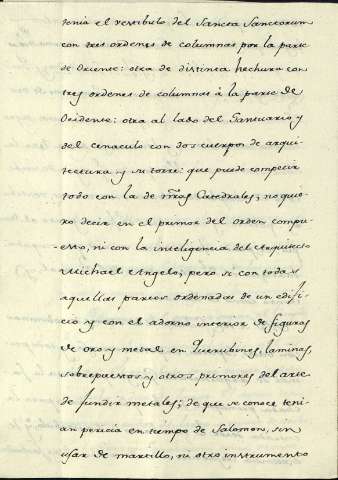 tenia el vestibulo del Sancta Sanctorum
con tres ordenes de columnas por la parte
de Oriente: otra de distinta hechura con
tres ordenes de columnas à la parte de
Ocidente: otra al lado del Santuario y
del cenaculo con dos cuerpos de arqui-
tectura y su torre: que puede competir
todo con la de nras Catedrales; no quie-
ro decir en el primor del orden compu-
esto, ni con la inteligencia del Arquitecto
Michael Angelo; pero si con todas
aquellas partes ordenadas de un edifi-
cio y con el adorno interior de figuras
de oro y metal en Querubines, laminas,
sobrepuestos y otros primores del arte
de fundir metales; de que se conoce teni-
an pericia en tiempo de Salomon, sin
usar de martillo, ni otro instrumento